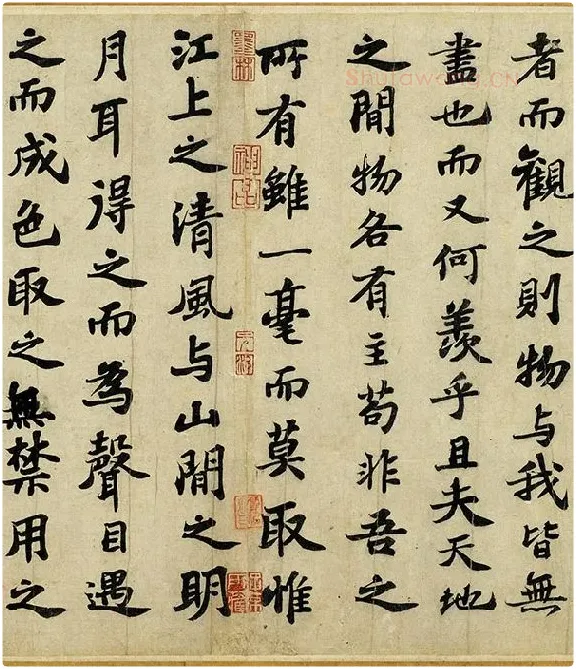 者而觀之則物与我皆無
盡也而又何羨乎且夫天地
之間物各有主苟非吾之
所有雖一毫而莫取惟
江上之清風与山間之明
月耳得之而為聲目遇
之而成色取之無禁用之